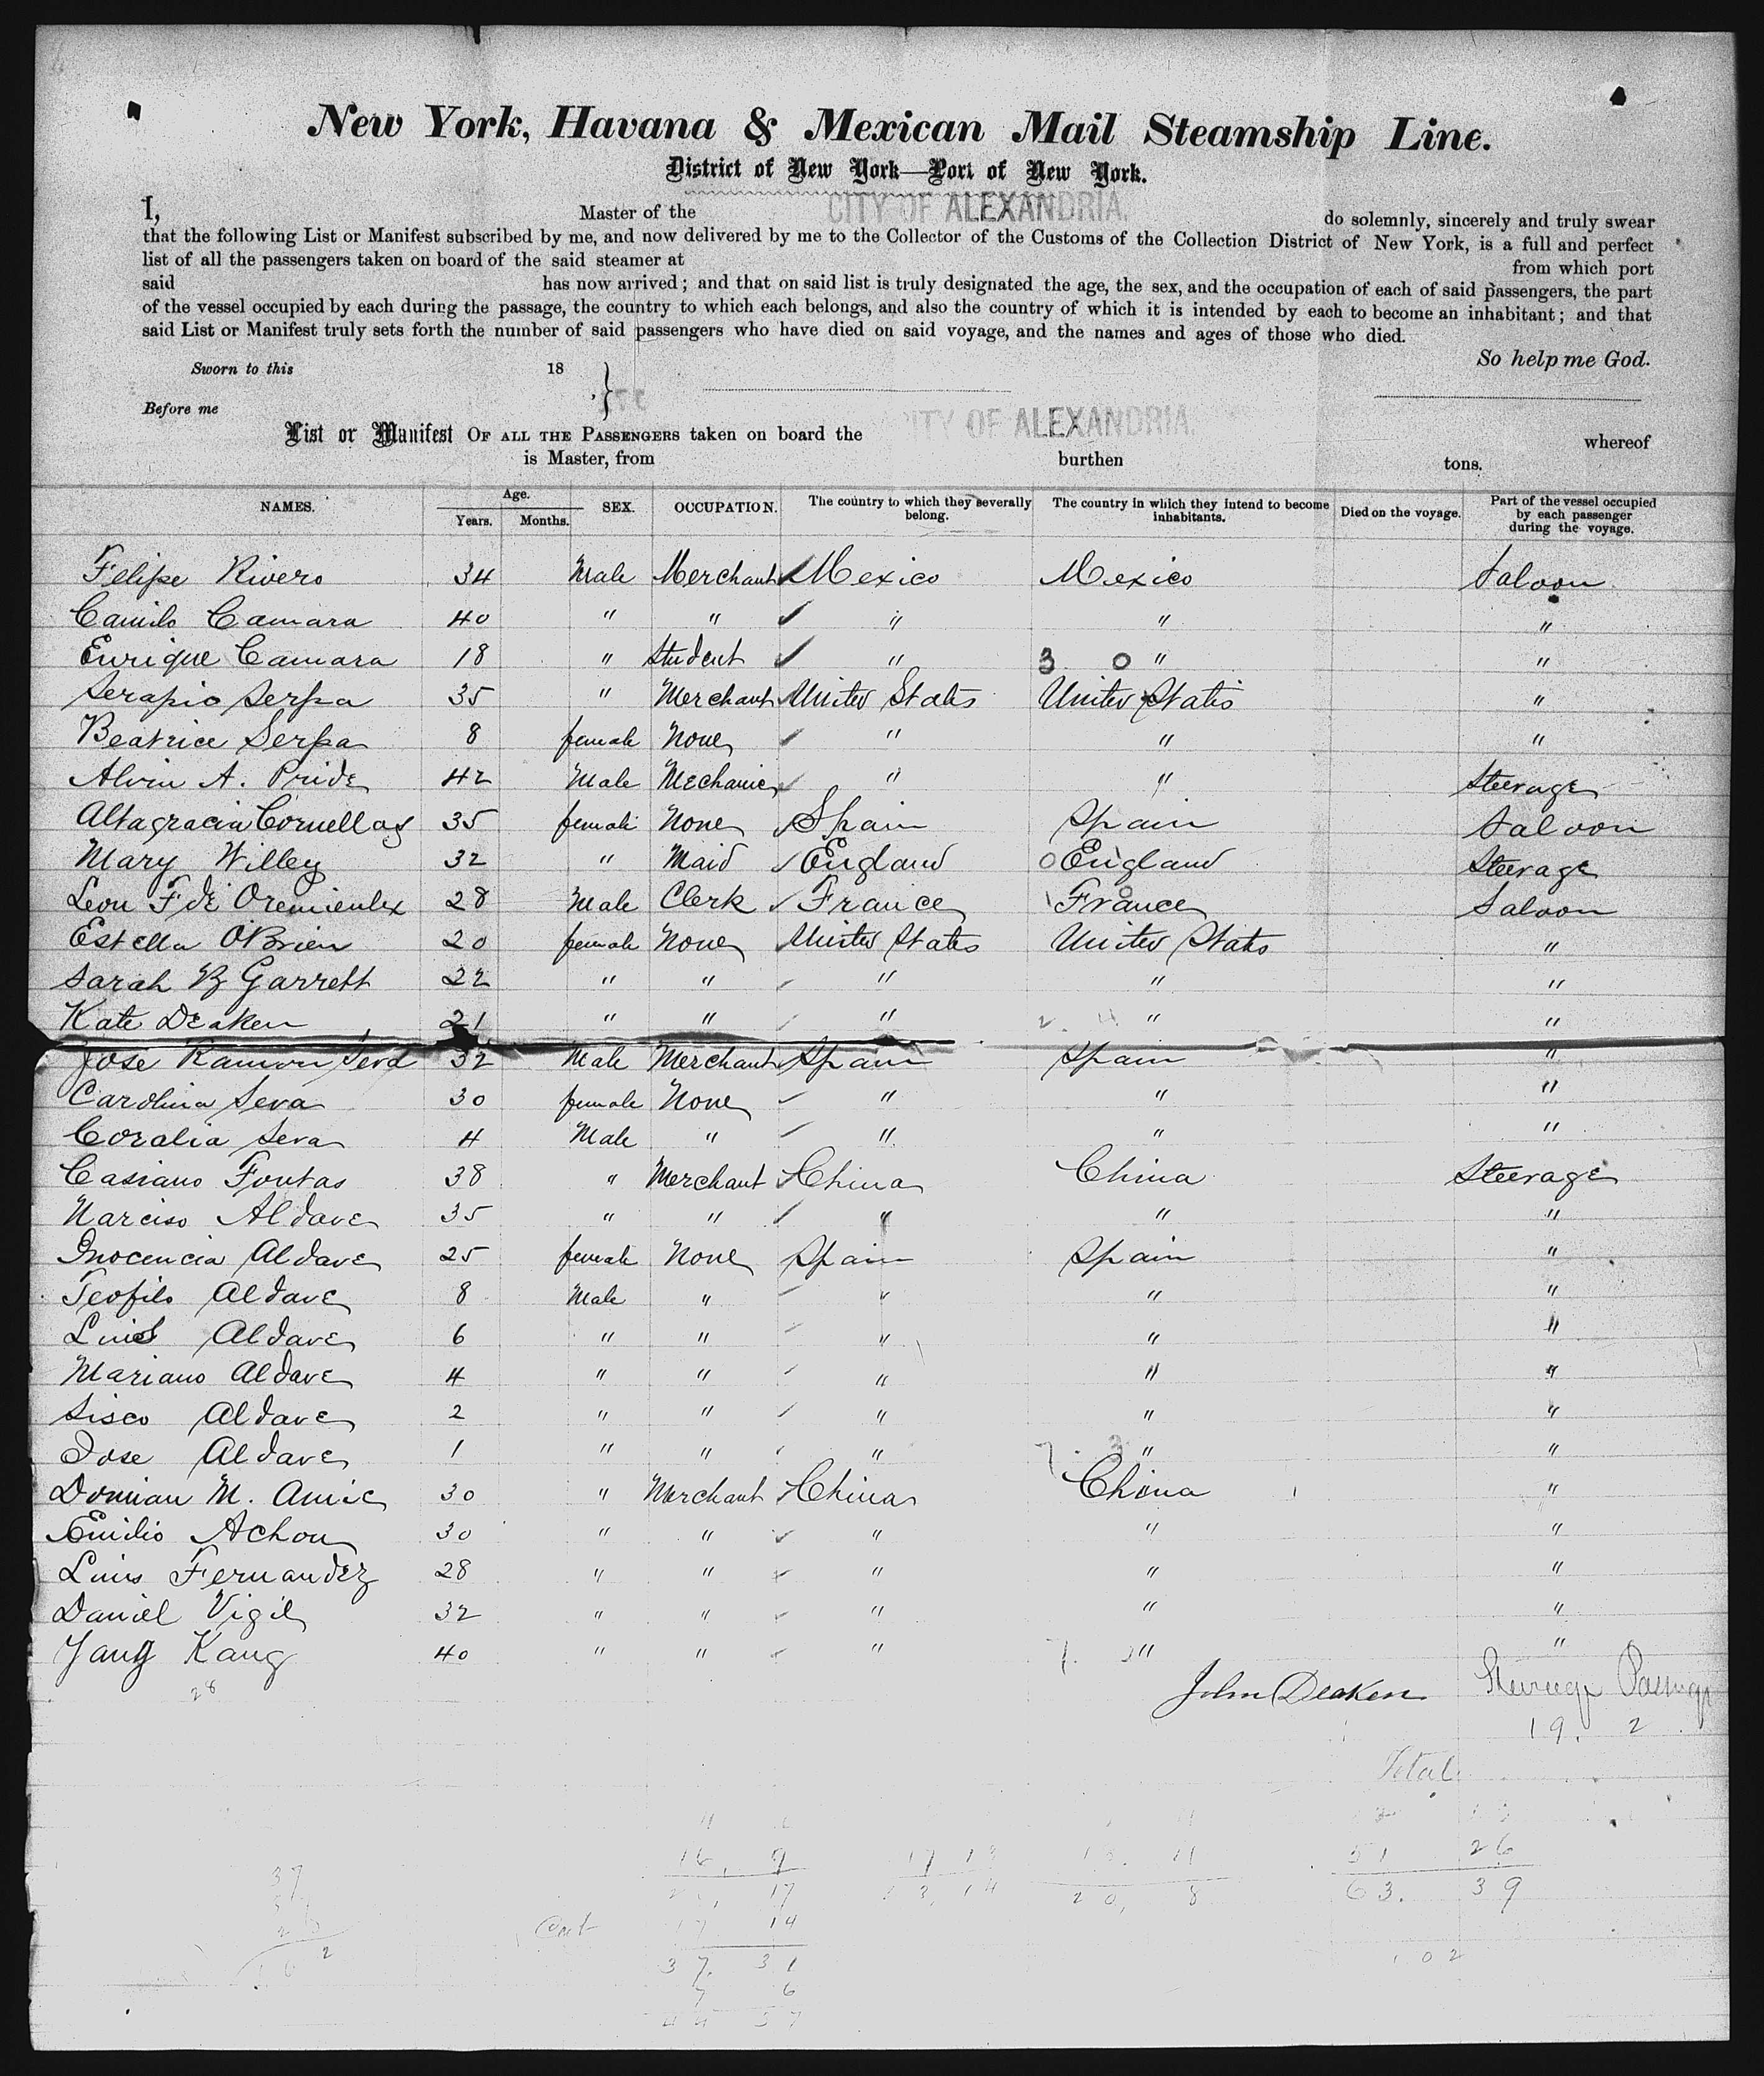 New York, Havana & Mexican Mail Steamship Line.
District of New York—Port of New York.
I, Master of the CITY OF ALEXANDRIA. do solemnly, sincerely and truly swear
that the following List or Manifest subscribed by me, and now delivered by me to the Collector of the Customs of the Collection District of New York, is a full and perfect
list of all the passengers taken on board of the said steamer at from which port
said has now arrived; and that on said list is truly designated the age, the sex, and the occupation of each of said passengers, the part
of the vessel occupied by each during the passage, the country to which each belongs, and also the country of which it is intended by each to become an inhabitant; and that
said List or Manifest truly sets forth the number of said passengers who have died on said voyage, and the names and ages of those who died.
So help me God.
Sworn to this 18
Before me
List or Manifest OF ALL THE PASSENGERS taken on board the CITY OF ALEXANDRIA. whereof
is Master, from burthen tons.
NAMES. Age. Years. Months. SEX. OCCUPATION. The country to which they severally belong. The country in which they intend to become inhabitants. Died on the voyage. Part of the vessel occupied by each passenger during the voyage.
Felipe Rivero 34 Male Merchant Mexico Mexico Saloon
Camilo Camara 40 " " " " "
Enrique Camara 18 " Student " 3 0 " "
Serapio Serpa 35 " Merchant United States United States "
Beatrice Serpa 8 female None " " "
Alvin A. Pride 42 Male Mechanic " " Steerage
Altagracia Cornellas 35 female None Spain Spain Saloon
Mary Willey 32 " Maid England 0 England Steerage
Leon F de 28 Male Clerk France 1 0 France Saloon
Estella O'Brien 20 female None United States United States "
Sarah B Garrett 22 " " " " "
Kate Deaken 21 " " " 2. 4 " "
Jose Ramon Seva 32 Male Merchant Spain Spain "
Carolina Seva 30 female None " " "
Coralia Seva 4 Male " " " "
Casiano Fontas 38 " Merchant China China Steerage
Narciso Aldave 35 " " " " "
Inocencia Aldave 25 female None Spain Spain "
Teofilo Aldave 8 Male " " " "
Luis Aldave 6 " " " " "
Mariano Aldave 4 " " " " "
Sisco Aldave 2 " " " " "
Jose Aldave 1 " " " 7. 3 " "
Domian M. Amic 30 " Merchant China China "
Emilio Achon 30 " " " " "
Luis Fernandez 28 " " " " "
Daniel Vigil 32 " " " " "
Yang Kang 40 " " " 7. " "
28
John Deaken Steerage Passage
19. 2
Total
16. 9 17 13 11 51 26
17 14 20, 8 63. 39
37 17 14
37. 31 102
6